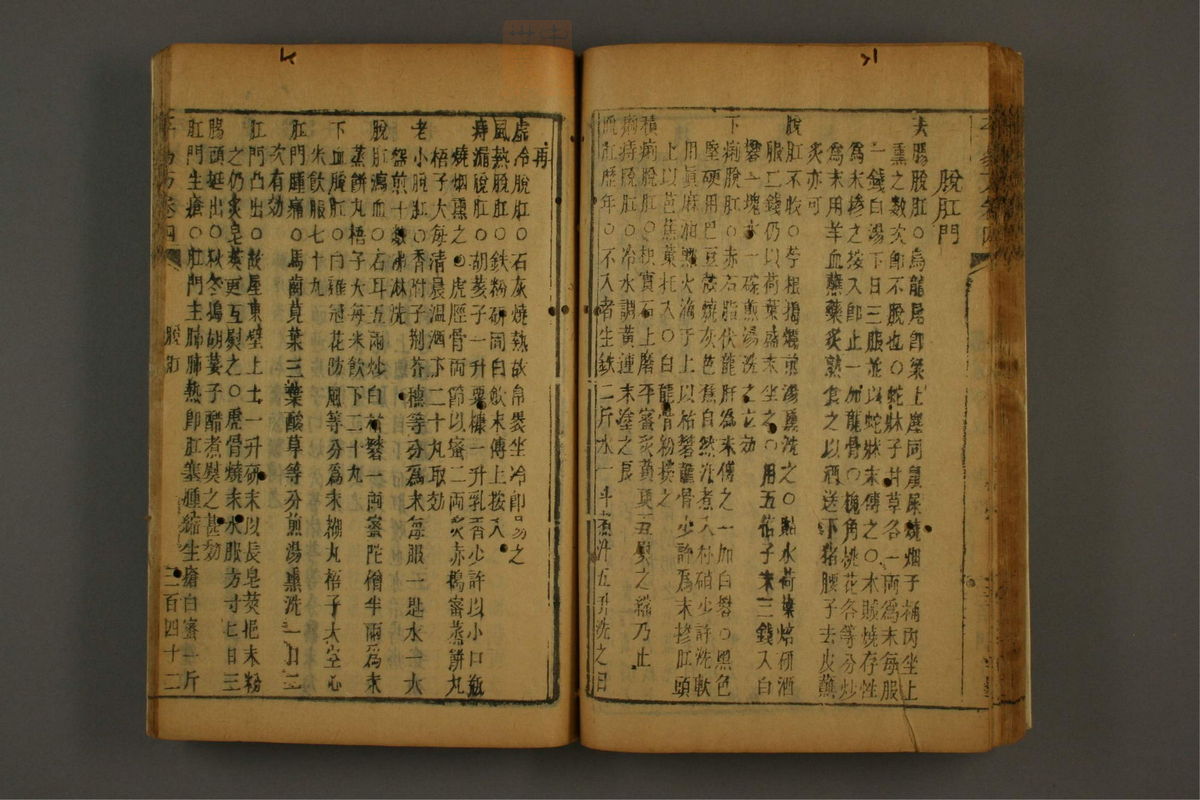 脫肛門
大腸脫肛○烏龍尾卽梁上塵同鼠屎燒烟于桶內坐上
熏之數次卽不脫也○蛇牀子甘草各一兩爲末每服
一錢白湯下日三服並以蛇牀末傅之○木賊燒存性
爲末摻之按入卽止一加龍骨○槐角槐花各等分炒
爲末用羊血蘸藥炙熟食之以酒送下猪腰子去皮蘸
炙亦可
脫肛不收○苧根搗爛煎湯熏洗之○貼水荷葉焙研酒
服二錢仍以荷葉盛末坐之○用五倍子末三錢入白
礬一塊水一碗煎湯洗之立効
下痢脫肛○赤石脂伏龍肝爲末傅之一加白礬○黑色
堅硬用巴豆殼燒灰芭蕉自然汁煮入朴硝少許洗軟
用眞麻油點火滴于上以枯礬龍骨少許爲末摻肛頭
上以芭蕉葉托入○白龍骨粉撲之
積痢脫肛○枳實石上磨平蜜炙黃更互熨之縮乃止
痢痔脫肛○冷水調黃連末塗之良
脫肛歷年○不入者生鉄二斤水一斗煮汁五升洗之日
再
虛冷脫肛○石灰燒熱故帛裹坐冷卽易之
風熱脫肛○鉄粉研同白歛末傅上按入
痔漏脫肛○胡荽子一升粟糠一升乳香少許以小口瓶
燒烟熏之○虎脛骨兩節以蜜二兩炙赤搗蜜蒸餅丸
梧子大每清晨温酒下二十丸取効
老小脫肛○香附子荆芥穗等分爲末每服一匙水一大
盌煎十數沸淋洗
脫肛瀉血○石耳五兩炒白枯礬一兩蜜陀僧半兩爲末
蒸餅丸梧子大每米飲下二十丸
下血脫肛○白雞冠花防風等分爲末糊丸梧子大空心
米飲服七十丸
肛門腫痛○馬齒莧葉三葉酸草等分煎湯熏洗一日二
次有効
肛門凸出○故屋東壁上土一升研末以長皂莢挹末粉
之仍炙皂莢更互熨之○虎骨燒末水服方寸匕日三
腸頭挺出○秋冬搗胡荽子醋煮熨之甚効
肛門生瘡○肛門主肺肺熱卽肛塞腫縮生瘡白蜜一斤
卷四
脫肛
三百四十二